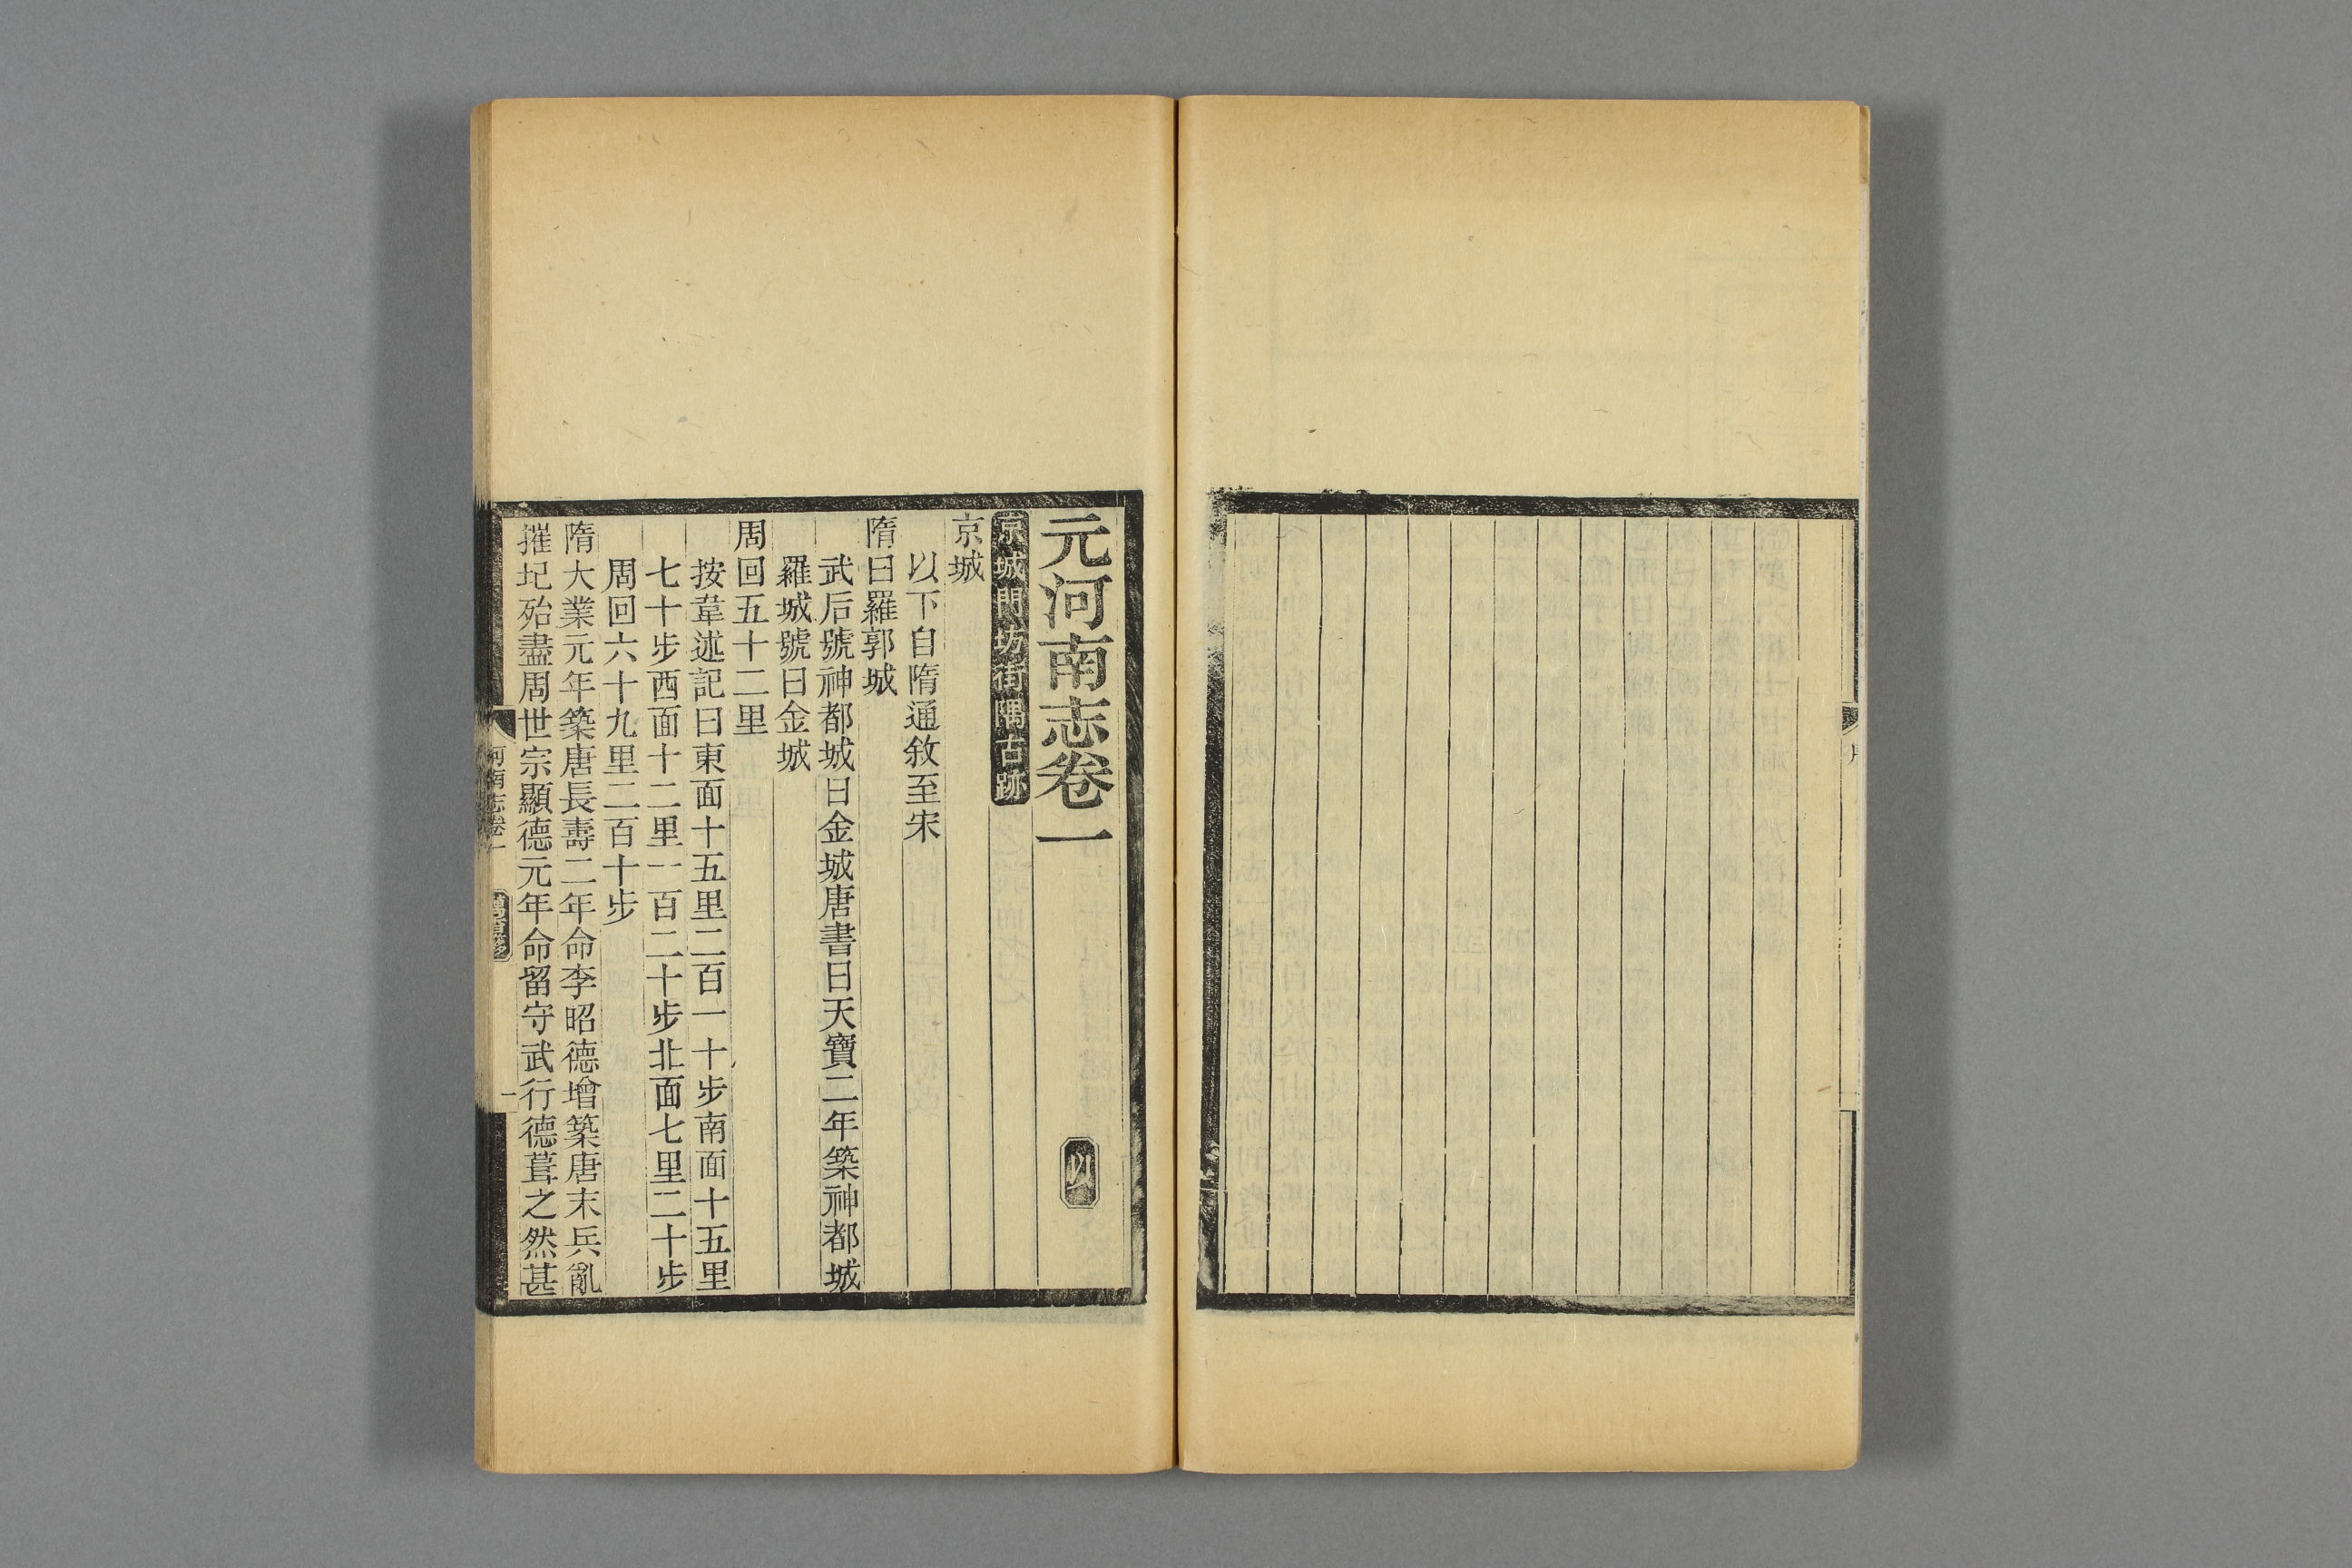 元河南志卷一
以
京城門坊街隅古跡
京城
以下自隋通敘至宋
隋曰羅郭城
武后號神都城曰金城唐書曰天寶二年築神都城
羅城號曰金城
周回五十二里
按韋述記曰東面十五里二百一十步南面十五里
七十步西面十二里一百二十步北面七里二十步
周回六十九里二百十步
隋大業元年築唐長壽二年命李昭德增築唐末兵亂
摧圮殆盡周世宗顯德元年命留守武行德葺之然甚
河南志卷一
一